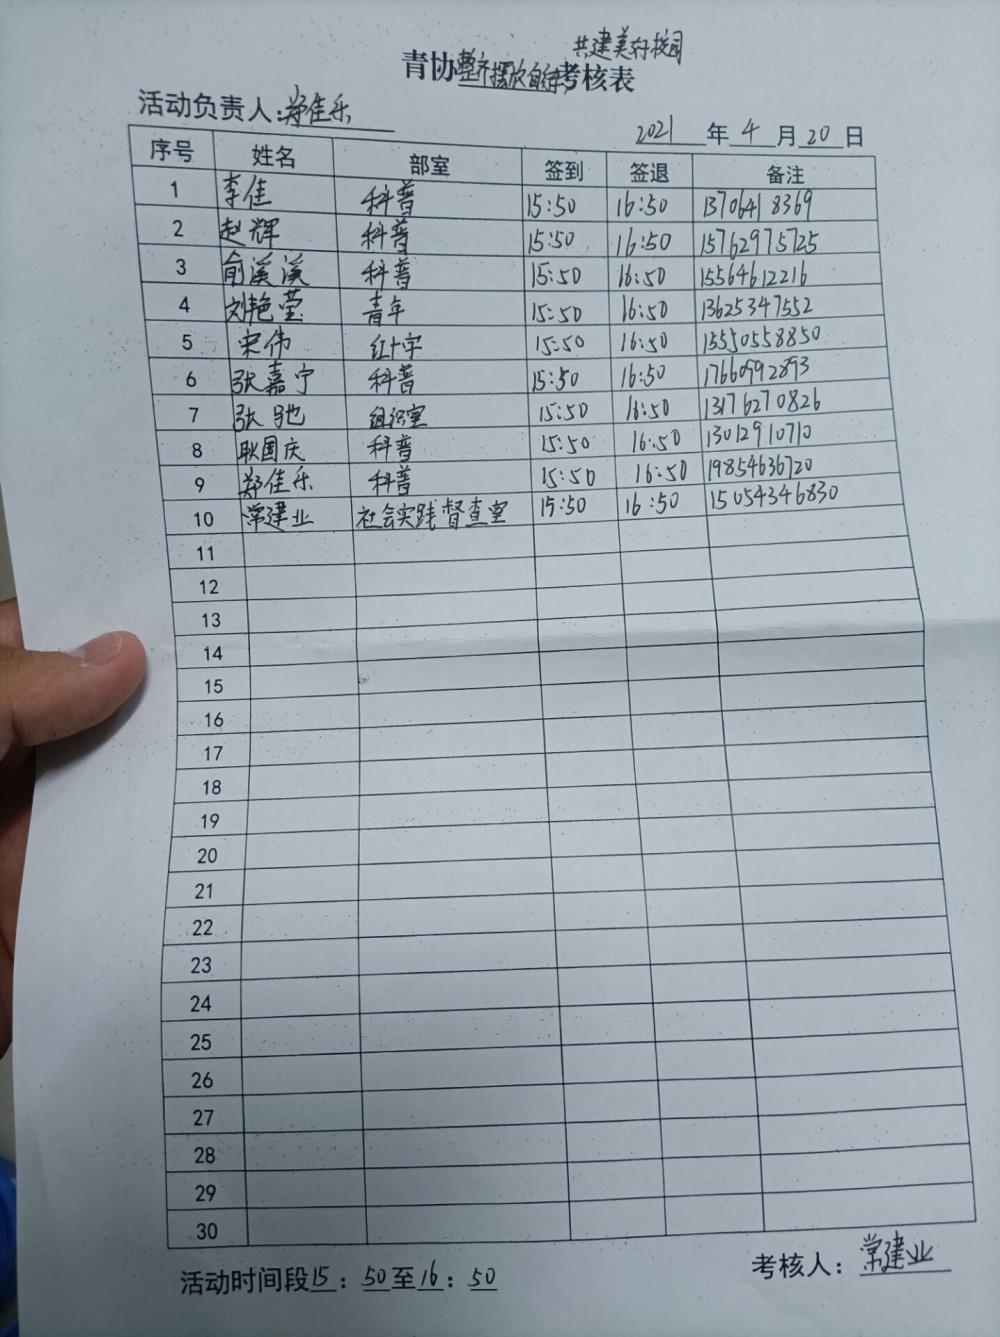 共建美好校园
青协整齐摆放自行车考核表
活动负责人:郑佳乐
2021年4月20日
序号 姓名 部室 签到 签退 备注
1 李佳 科普 15:50 16:50 13706418369
2 赵辉 科普 15:50 16:50 15762975725
3 俞溪溪 科普 15:50 16:50 15564612216
4 刘艳莹 青年 15:50 16:50 13625347552
5 宋伟 红十字 15:50 16:50 15550558850
6 张嘉宁 科普 15:50 16:50 17660992893
7 张驰 组织室 15:50 16:50 13176270826
8 耿国庆 科普 15:50 16:50 13012910710
9 郑佳乐 科普 15:50 16:50 19854636720
10 常建业 社会实践督查室 15:50 16:50 15054346830
11
12
13
14
15
16
17
18
19
20
21
22
23
24
25
26
27
28
29
30
活动时间段15:50至16:50
考核人:常建业